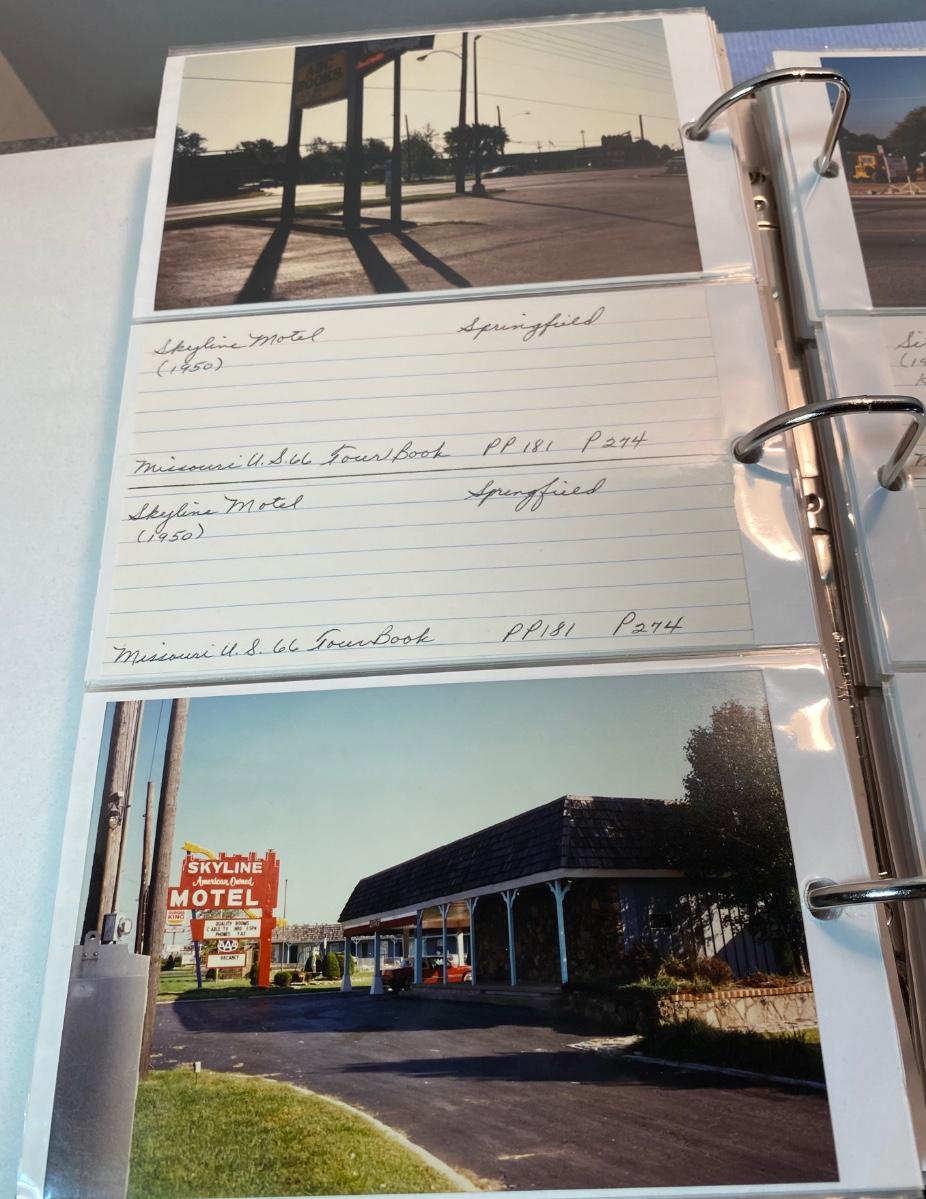 ABC
BOOKS
Skyline Motel Springfield
(1950)
Missouri U.S. 66 Tour Book PP 181 P 274
Skyline Motel Springfield
(1950)
Missouri U.S. 66 Tour Book PP181 P274
SKYLINE
American Owned
MOTEL
BURGER
KING
QUALITY ROOMS
CABLE TV HBO ESPN
PHONES FAX
AAA
VACANCY